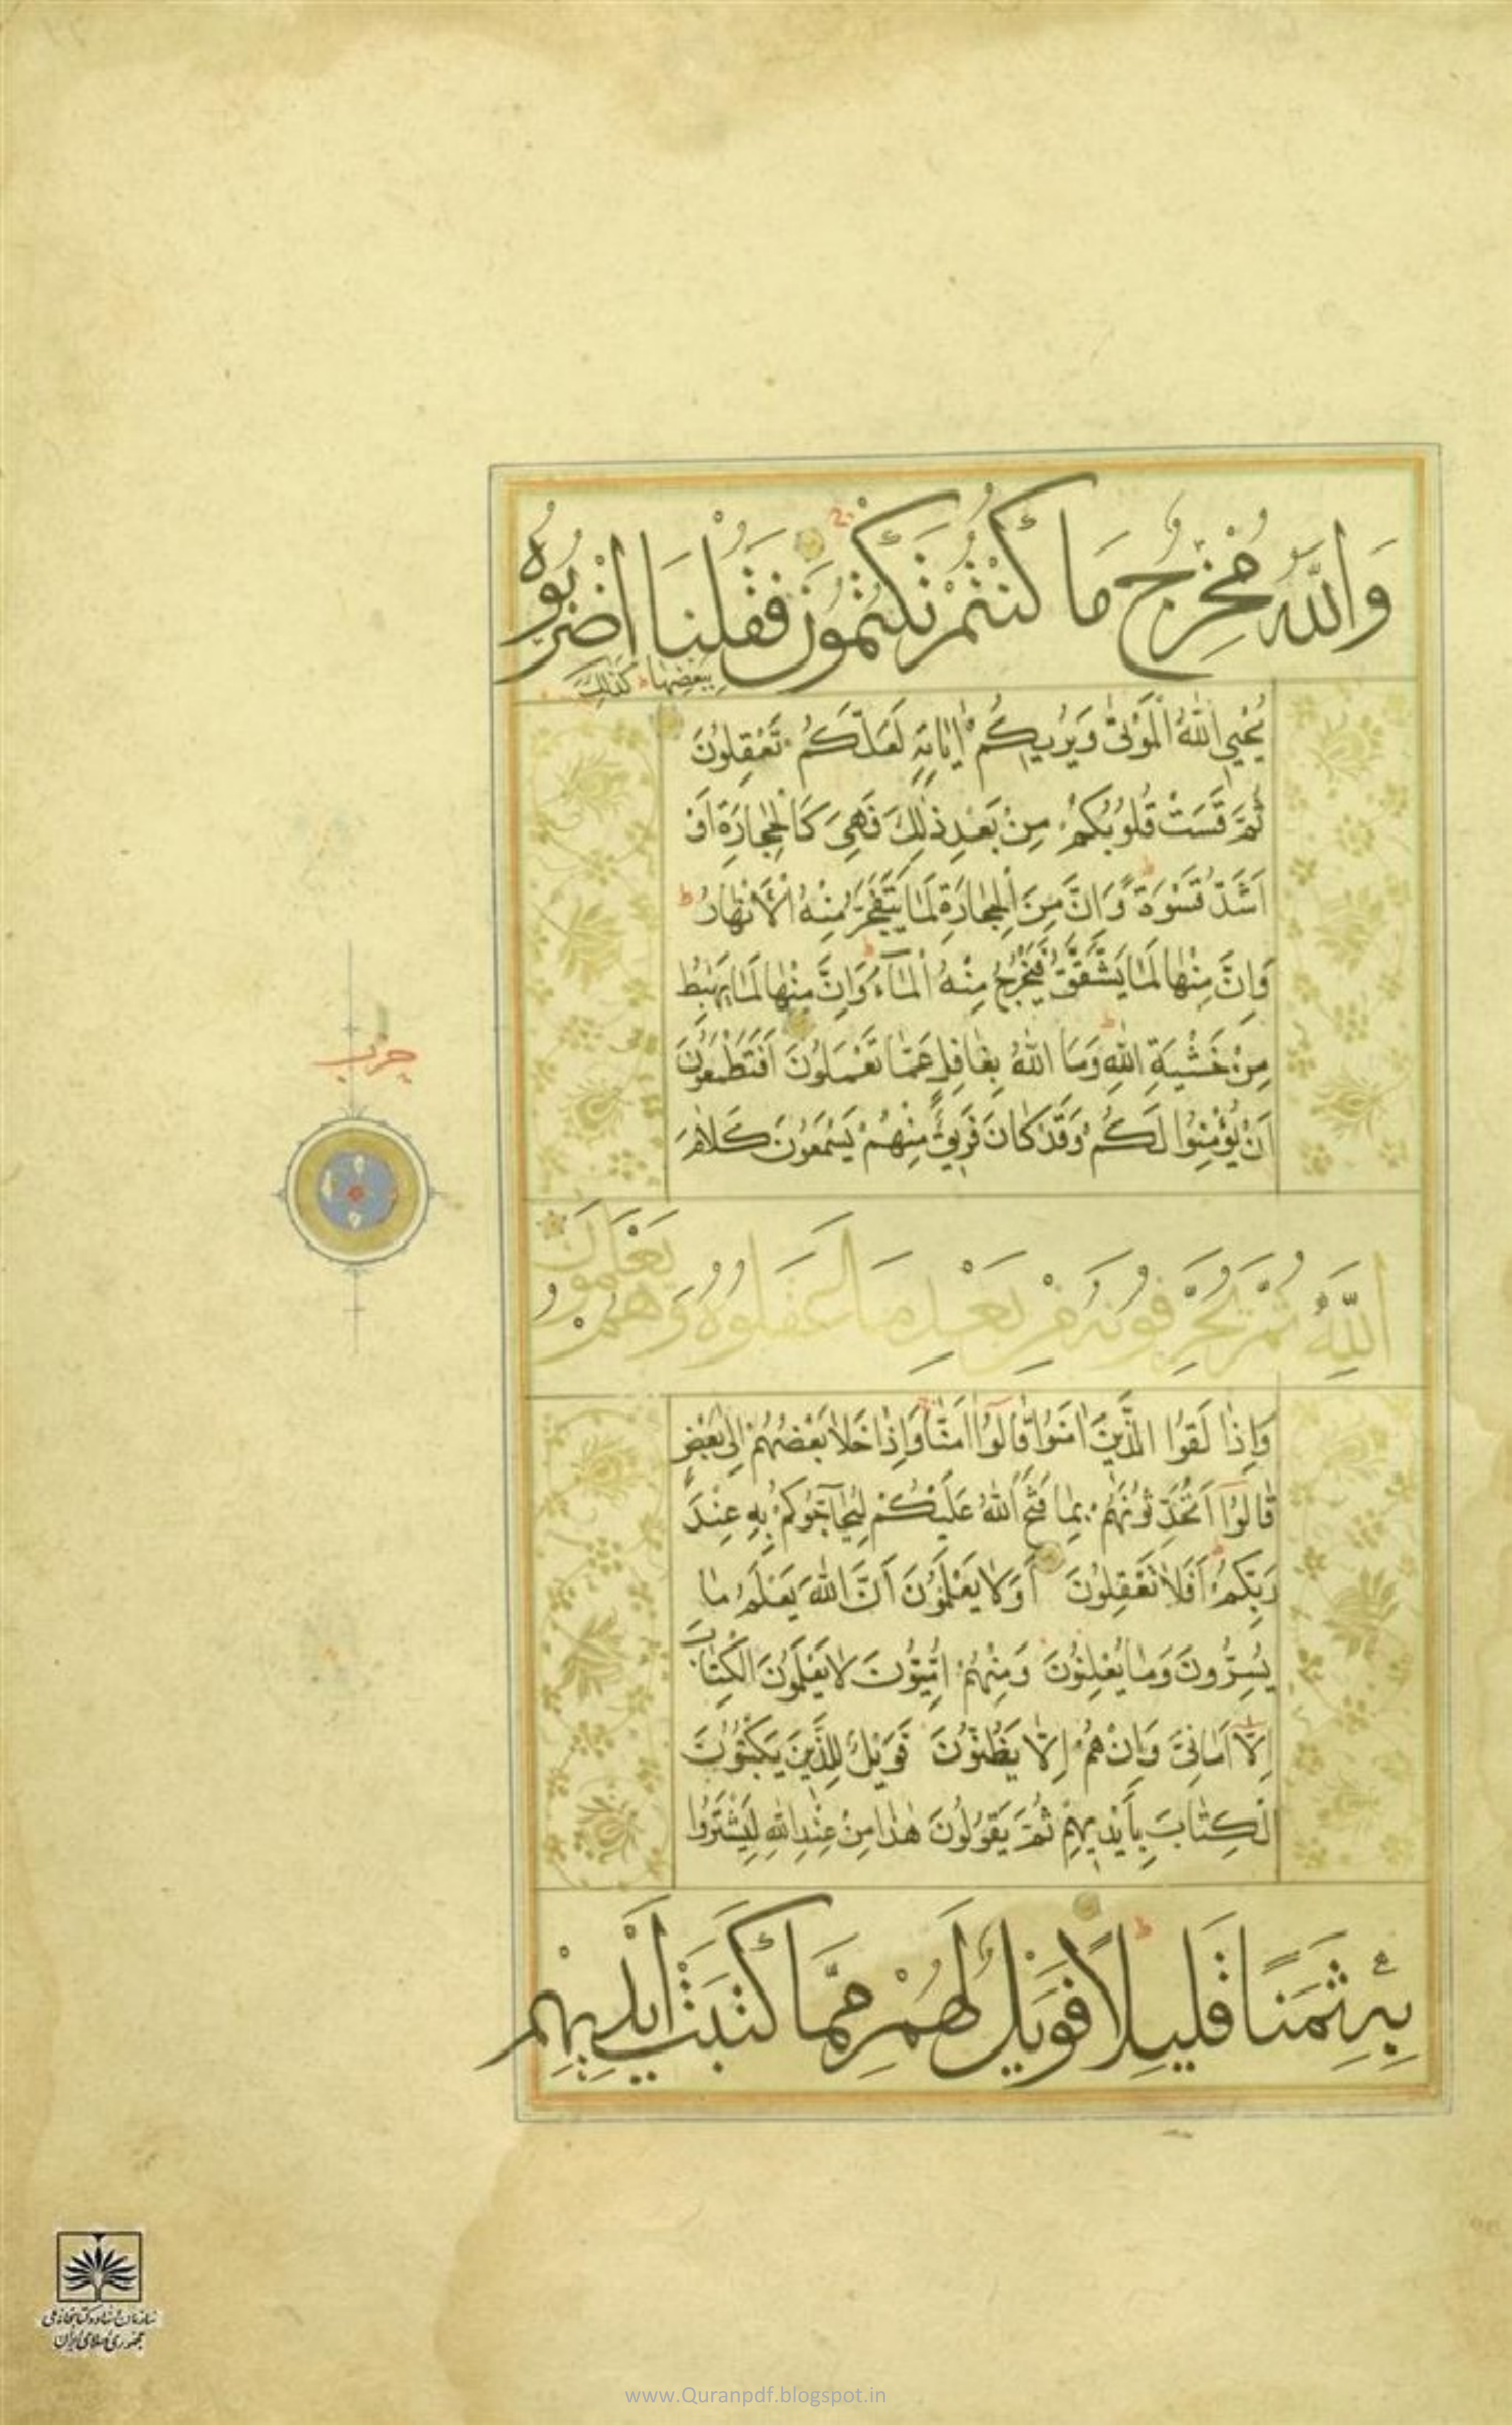 وَاللَّهُ مُخْرِجٌ مَا كُنْتُمْ تَكْتُمُونَ فَقُلْنَا اضْرِبُوهُ
بِبَعْضِهَا كَذَلِكَ
يُحْيِي اللَّهُ الْمَوْتَىٰ وَيُرِيكُمْ اٰيَاتِهِ لَعَلَّكُمْ تَعْقِلُونَ
ثُمَّ قَسَتْ قُلُوبُكُمْ مِنْ بَعْدِ ذٰلِكَ فَهِيَ كَالْحِجَارَةِ اَوْ
اَشَدُّ قَسْوَةً وَاِنَّ مِنَ الْحِجَارَةِ لَمَا يَتَفَجَّرُ مِنْهُ الْاَنْهَارُ
وَاِنَّ مِنْهَا لَمَا يَشَّقَّقُ فَيَخْرُجُ مِنْهُ الْمَآءُ وَاِنَّ مِنْهَا لَمَا يَهْبِطُ
مِنْ خَشْيَةِ اللَّهِ وَمَا اللَّهُ بِغَافِلٍ عَمَّا تَعْمَلُونَ اَفَتَطْمَعُونَ
اَنْ يُؤْمِنُوا لَكُمْ وَقَدْ كَانَ فَرِيقٌ مِنْهُمْ يَسْمَعُونَ كَلَامَ
حزب
اللَّهِ ثُمَّ يُحَرِّفُونَهُ مِنْ بَعْدِ مَا عَقَلُوهُ وَهُمْ
يَعْلَمُونَ
وَاِذَا لَقُوا الَّذِينَ اٰمَنُوا قَالُوا اٰمَنَّا وَاِذَا خَلَا بَعْضُهُمْ اِلَىٰ بَعْضٍ
قَالُوا اَتُحَدِّثُونَهُمْ بِمَا فَتَحَ اللَّهُ عَلَيْكُمْ لِيُحَآجُّوكُمْ بِهِ عِنْدَ
رَبِّكُمْ اَفَلَا تَعْقِلُونَ اَوَلَا يَعْلَمُونَ اَنَّ اللَّهَ يَعْلَمُ مَا
يُسِرُّونَ وَمَا يُعْلِنُونَ وَمِنْهُمْ اُمِّيُّونَ لَا يَعْلَمُونَ الْكِتَابَ
اِلَّا اَمَانِيَّ وَاِنْ هُمْ اِلَّا يَظُنُّونَ فَوَيْلٌ لِلَّذِينَ يَكْتُبُونَ
الْكِتَابَ بِاَيْدِيهِمْ ثُمَّ يَقُولُونَ هٰذَا مِنْ عِنْدِ اللَّهِ لِيَشْتَرُوا
بِهِ ثَمَنًا قَلِيلًا فَوَيْلٌ لَهُمْ مِمَّا كَتَبَتْ اَيْدِيهِمْ
سازمان اسناد و کتابخانه ملی
جمهوری اسلامی ایران
www.Quranpdf.blogspot.in